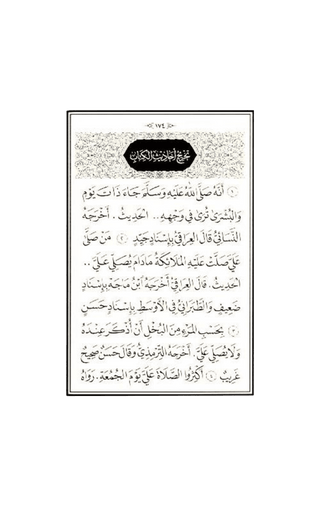 ١٧٤
تخريج أحاديث الكتاب
١ أنَّهُ صَلَّى اللهُ عَلَيْهِ وَسَلَّمَ جَاءَ ذَاتَ يَوْمٍ
وَالْبُشْرَى تُرَى فِي وَجْهِهِ .. الحَدِيثَ . أَخْرَجَهُ
النَّسَائِيُّ قَالَ العِرَاقِيُّ بِإِسْنَادٍ جَيِّدٍ ٢ مَنْ صَلَّى
عَلَيَّ صَلَّتْ عَلَيْهِ المَلَائِكَةُ مَادَامَ يُصَلِّي عَلَيَّ ..
الحَدِيثَ . قَالَ العِرَاقِيُّ أَخْرَجَهُ ابْنُ مَاجَه بِإِسْنَادٍ
ضَعِيفٍ وَالطَّبَرَانِيُّ فِي الأَوْسَطِ بِإِسْنَادٍ حَسَنٍ
٣ بِحَسْبِ المَرْءِ مِنَ البُخْلِ أَنْ أُذْكَرَ عِنْدَهُ
وَلَا يُصَلِّي عَلَيَّ . أَخْرَجَهُ التِّرْمِذِيُّ وَقَالَ حَسَنٌ صَحِيحٌ
غَرِيبٌ ٤ أَكْثِرُوا الصَّلَاةَ عَلَيَّ يَوْمَ الجُمُعَةِ . رَوَاهُ